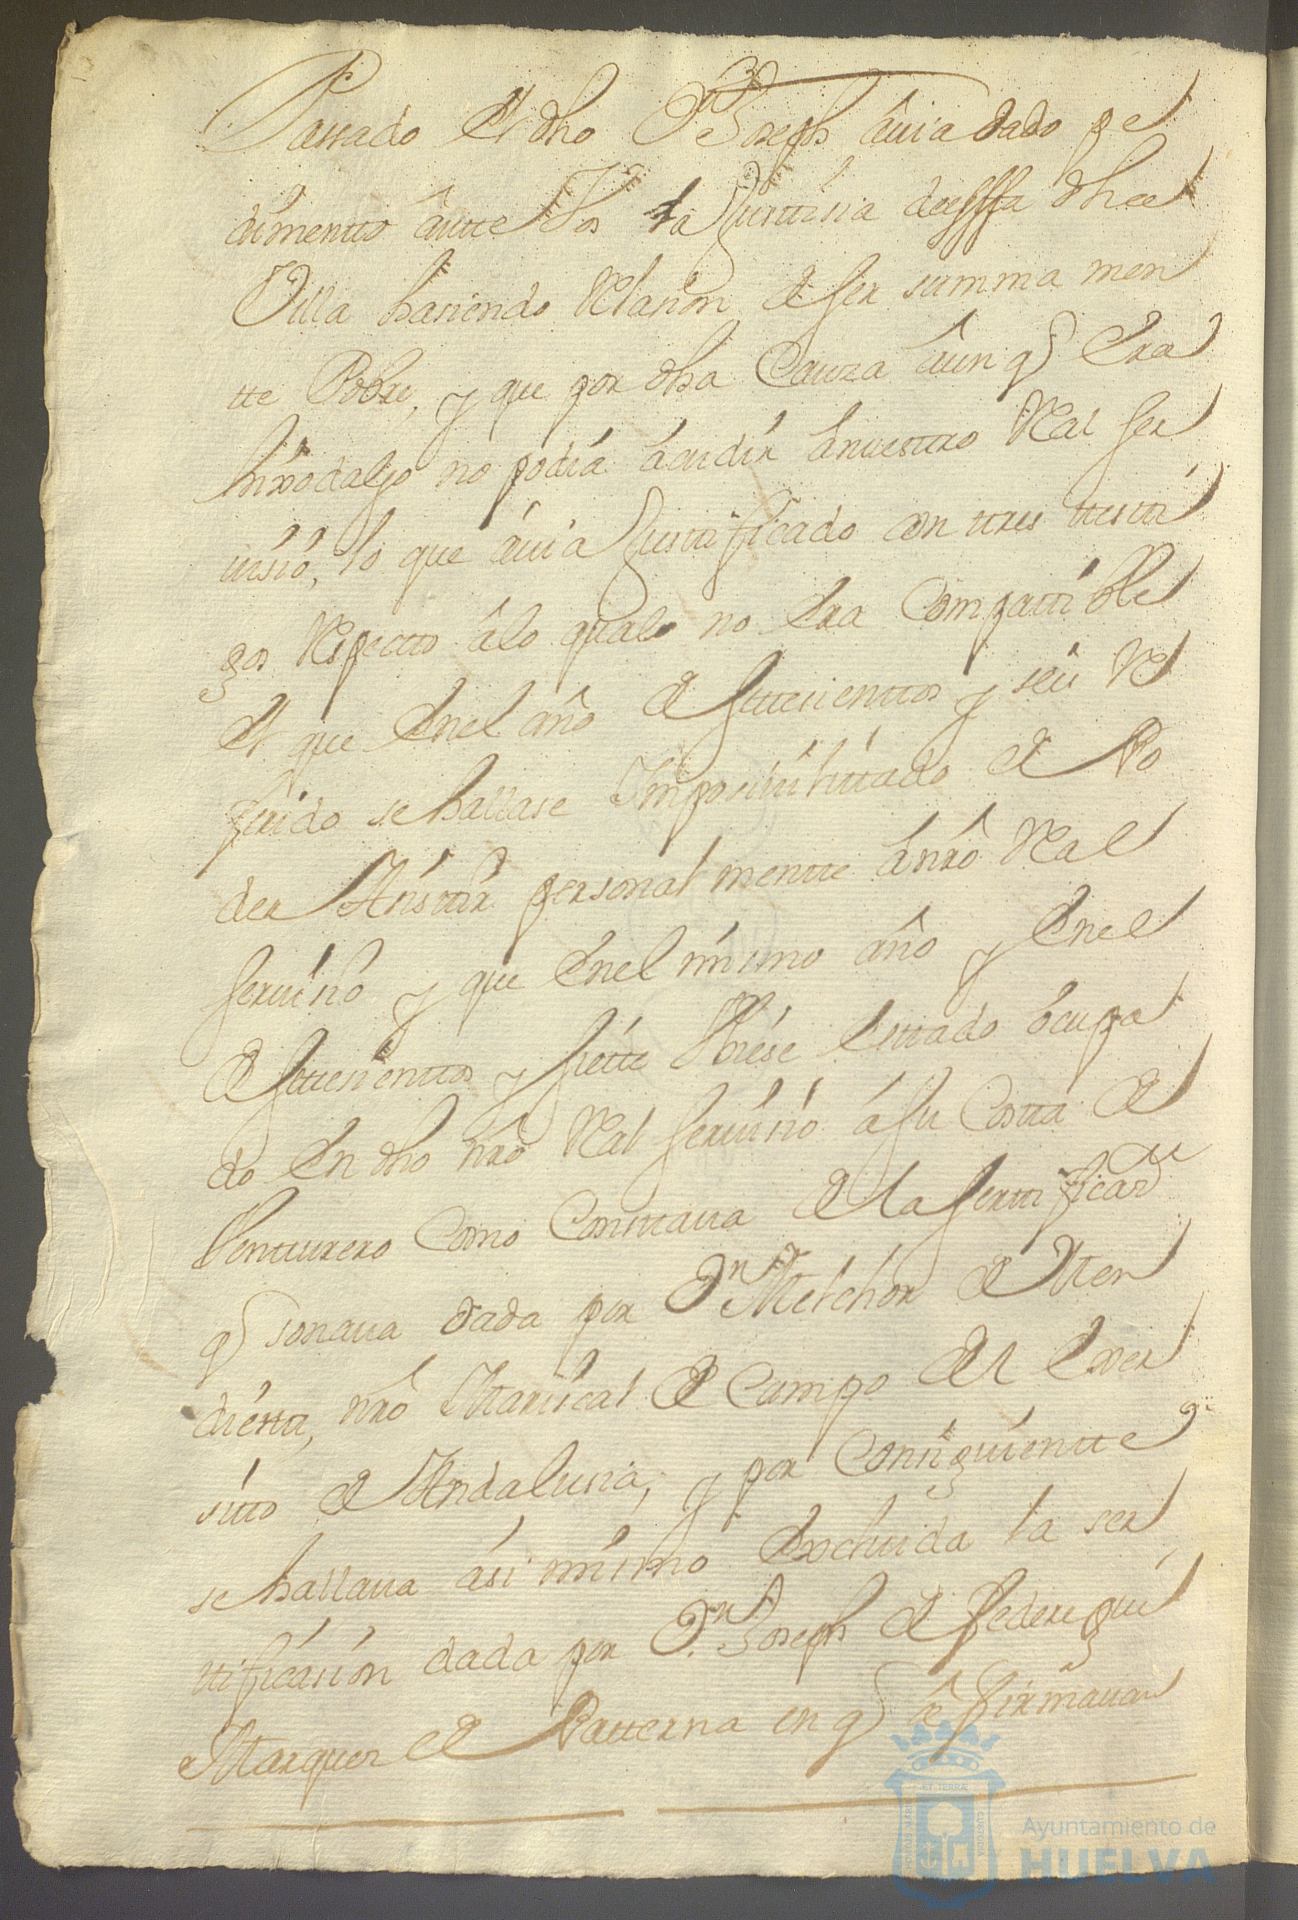 Passado el dho Dn Joseph âuia dado pe
dimento ântte Vos la Justtisia deessa dha
Villa hasiendo Relasion de ser summa men
tte Pobre, y que por dha Cauza âun q era
hixodalgo no podia âcudir ânuesttro Real ser
uisio, lo que âuia Justtificado con ttres ttestti
gos Respectto âlo qual no era Compattible
el que enel año de settesienttos y seis Re
ferido se hallase Imposiuilittado de Po
der Asisttir personal mentte ânrô Real
seruisio y que enel mismo año y enel
de settesienttos y siette hubiese esttado ôcupa
do en dho nrô Real seruisio â su Costta de
Venturero Como Consttaua de la serttificazn
q sonaua dada por Dn Melchor de Auen
diestta, nrô Mariscal de Campo del exer
sitto de Andalusia, y por Consiguientte
se hallaua âsi mismo excluida la ser
ttificasion dada por Dn Joseph de Federequi
Marques de Patterna en q âfirmaua
Ayuntamiento de
HUELVA